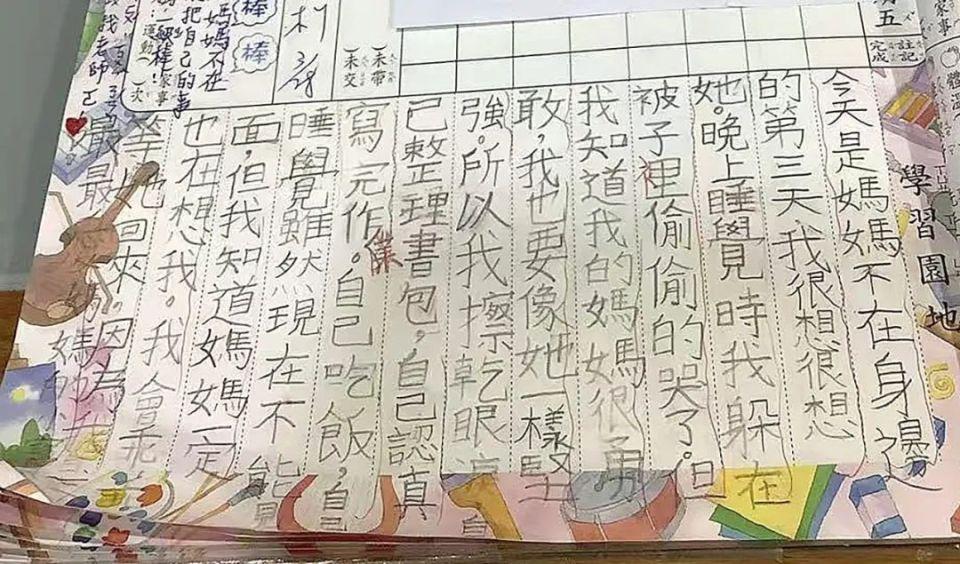 家事
體溫
五
註記
完成
學習園地
未帶
未交
棒
棒
媽媽不在
把自己的事
運動
家事
次
老師
今天是媽媽不在身邊
的第三天我很想很想
她。晚上睡覺時我躲在
被子裡偷偷的哭了。但
我知道我的媽媽很勇
敢,我也要像她一樣堅
強。所以我擦乾眼淚自
己整理書包,自己認真
寫完作業。自己吃飯,自
睡覺雖然現在不能
面,但我知道媽媽一定
也在想我。我會乖
等她回來。因為
最最媽